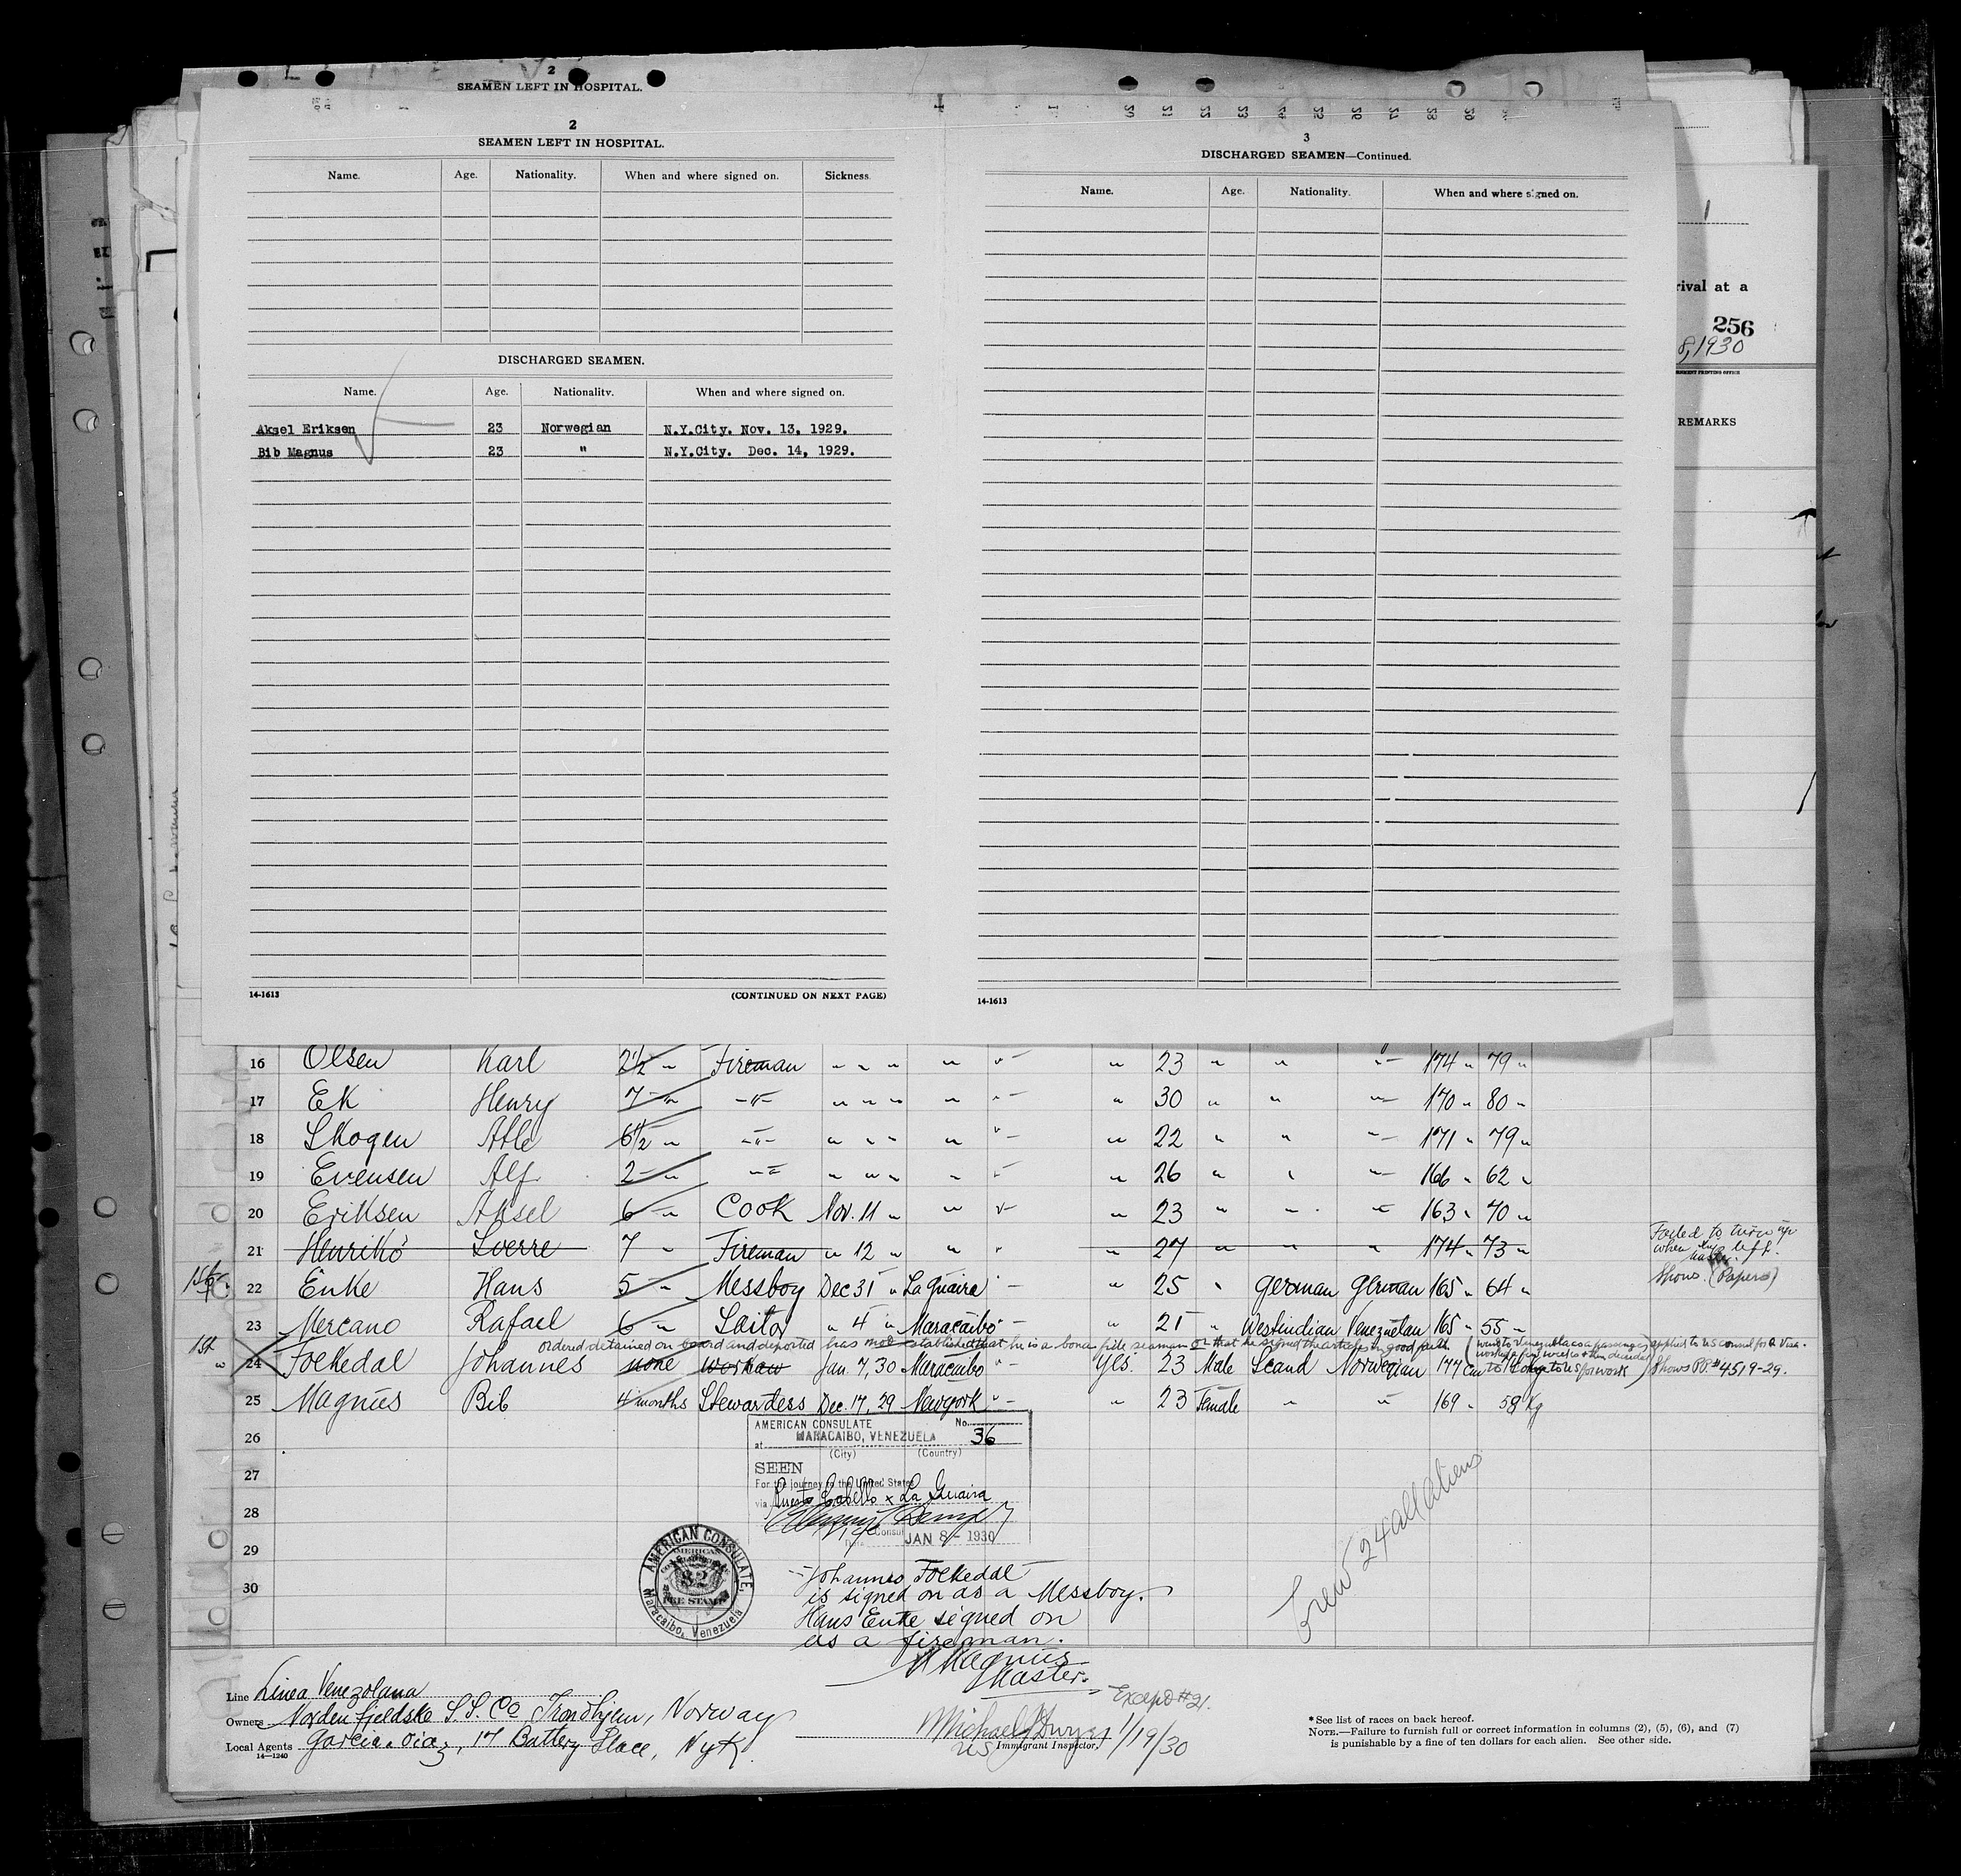 2
SEAMEN LEFT IN HOSPITAL.
2
SEAMEN LEFT IN HOSPITAL.
Name. Age. Nationality. When and where signed on. Sickness
DISCHARGED SEAMEN.
Name. Age. Nationality. When and where signed on.
Aksel Eriksen 23 Norwegian N.Y.City. Nov. 13, 1929.
Bib Magnus 23 " N.Y.City. Dec. 14, 1929.
14-1613 (CONTINUED ON NEXT PAGE)
3
DISCHARGED SEAMEN—Continued.
Name. Age. Nationality. When and where signed on.
14-1613
1
rival at a
256
8, 1930
REMARKS
16 Olsen Karl 2½ " Fireman " " " " " " 23 " " " 174 " 79 "
17 Ek Henry 7 " " " " " " " " 30 " " " 170 " 80 "
18 Skogen Atle 6½ " " " " " " " " 22 " " " 171 " 79 "
19 Evensen Alf 2 " " " " " " " " 26 " " " 166 " 62 "
20 Eriksen Aksel 6 " Cook Nov. 11 " " " " 23 " " " 163 " 70 "
21 Henrikó Sverre 7 " Fireman " 12 " " " " 27 " " " 174 " 73 " Failed to turn up when left.
22 Enke Hans 5 " Messboy Dec 31 " La Guaira " " 25 " German German 165 " 64 " Shows (Papers)
23 Mercano Rafael 6 " Sailor " 4 " Maracaibo " " 21 " Westindian Venezuelan 165 " 55 "
ordered detained on board and deported has not established that he is a bona fide seaman or that he signed the articles in good faith (went to Venezuela as a passenger applied to US consul for a Visa.
24 Foekedal Johannes none workaw Jan. 7, 30 Maracaibo " Yes. 23 Male Scand Norwegian 177 cm to US for work) Shows PP. # 4519-29.
25 Magnus Bib 4 months Stewardess Dec. 17, 29 Newyork " " 23 Female " " 169 " 58 Kg
26
27
28
29
30
AMERICAN CONSULATE No. 36
at MARACAIBO, VENEZUELA
(City) (Country)
SEEN
For the journey to the United States
via Puerto Cabello & La Guaira
Vice Consul
Date JAN 8 - 1930
AMERICAN CONSULATE,
Maracaibo, Venezuela
AMERICAN
$2
FEE STAMP
Johannes Foekedal
is signed on as a Messboy.
Hans Enke signed on
as a fireman.
Magnus
Master.
Crew 24 all aliens
Line Linea Venezolana
Owners Nordenfjeldske S.S. Co Trondhjem, Norway
Local Agents Garcia & Diaz, 17 Battery Place, NyK.
14-1240
Except #21.
Michael J Dwyer 1/19/30
US Immigrant Inspector.
* See list of races on back hereof.
NOTE.—Failure to furnish full or correct information in columns (2), (5), (6), and (7)
is punishable by a fine of ten dollars for each alien. See other side.